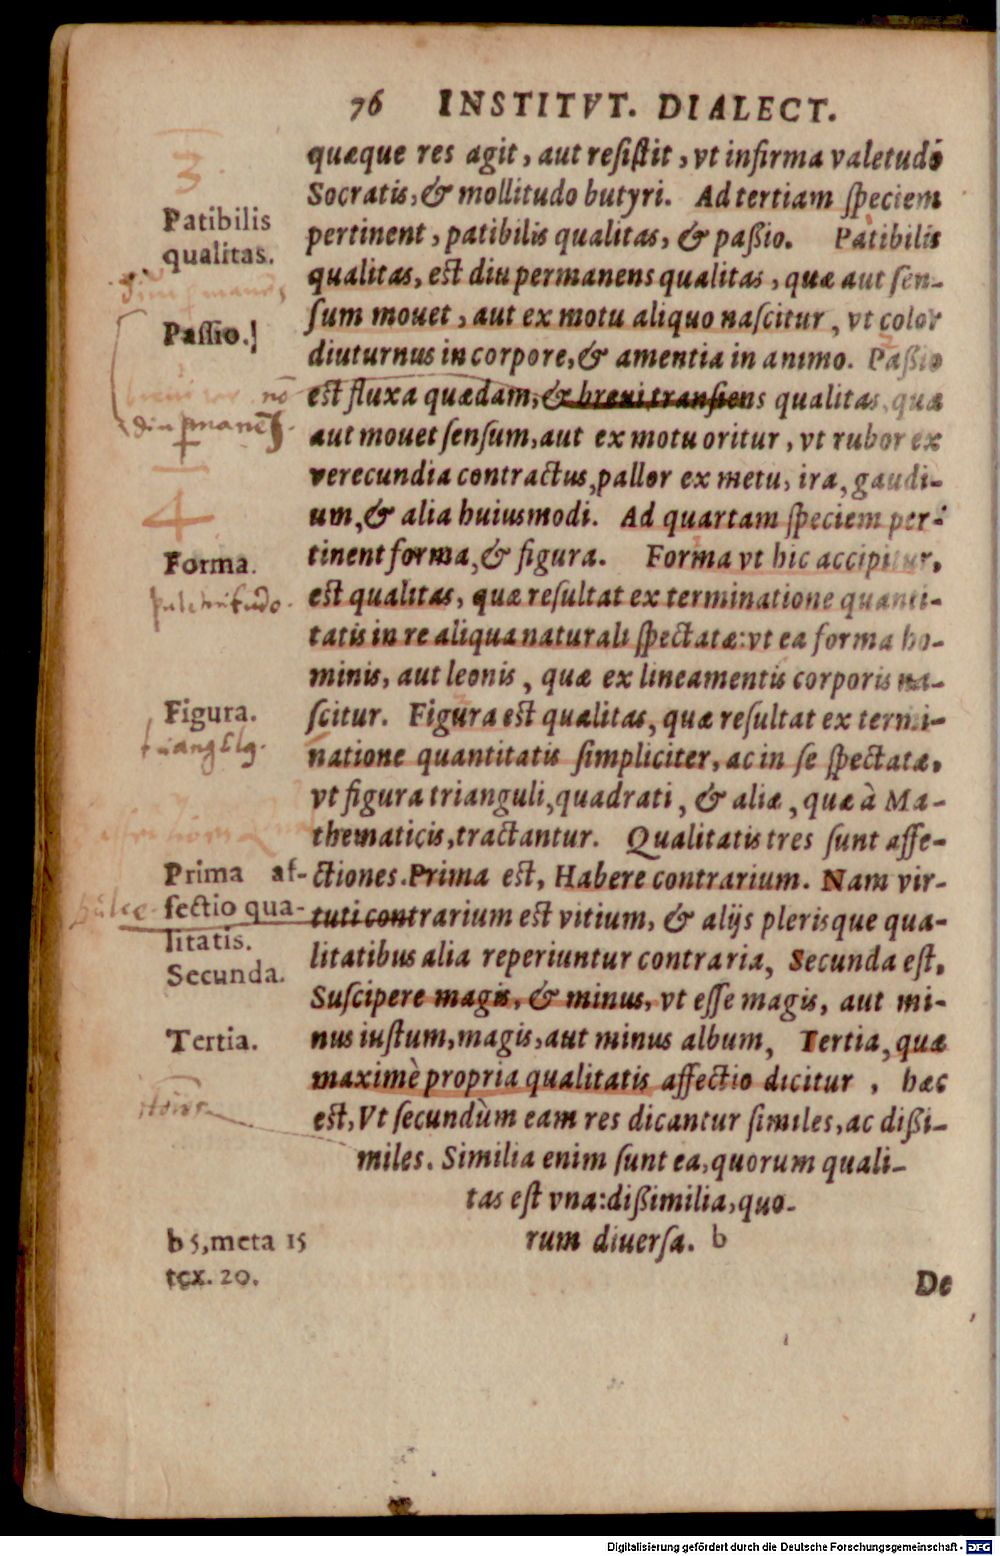 76 INSTITVT. DIALECT.
quæque res agit, aut resistit, vt infirma valetudo
Socratis, & mollitudo butyri. Ad tertiam speciem
pertinent, patibilis qualitas, & paßio. Patibilis
qualitas, est diu permanens qualitas, quæ aut sen-
sum mouet, aut ex motu aliquo nascitur, vt color
diuturnus in corpore, & amentia in animo. Paßio
est fluxa quædam, & breui transiens qualitas, quæ
aut mouet sensum, aut ex motu oritur, vt rubor ex
verecundia contractus, pallor ex metu, ira, gaudi-
um, & alia huiusmodi. Ad quartam speciem per-
tinent forma, & figura. Forma vt hic accipitur,
est qualitas, quæ resultat ex terminatione quanti-
tatis in re aliqua naturali spectatæ: vt ea forma ho-
minis, aut leonis, quæ ex lineamentis corporis na-
scitur. Figura est qualitas, quæ resultat ex termi-
natione quantitatis simpliciter, ac in se spectatæ,
vt figura trianguli, quadrati, & aliæ, quæ à Ma-
thematicis, tractantur. Qualitatis tres sunt affe-
ctiones. Prima est, Habere contrarium. Nam vir-
tuti contrarium est vitium, & alijs plerisque qua-
litatibus alia reperiuntur contraria, Secunda est,
Suscipere magis, & minus, vt esse magis, aut mi-
nus iustum, magis, aut minus album, Tertia, quæ
maximè propria qualitatis affectio dicitur, hæc
est, Vt secundùm eam res dicantur similes, ac dißi-
miles. Similia enim sunt ea, quorum quali-
tas est vna: dißimilia, quo-
rum diuersa. b
De
3
Patibilis
qualitas.
Passio.
nō
diu permanēs
4
Forma.
pulchritudo.
Figura.
Prima af-
fectio qua-
litatis.
Secunda.
Tertia.
b 5, meta 15
tex. 20.
Digitalisierung gefördert durch die Deutsche Forschungsgemeinschaft - DFG